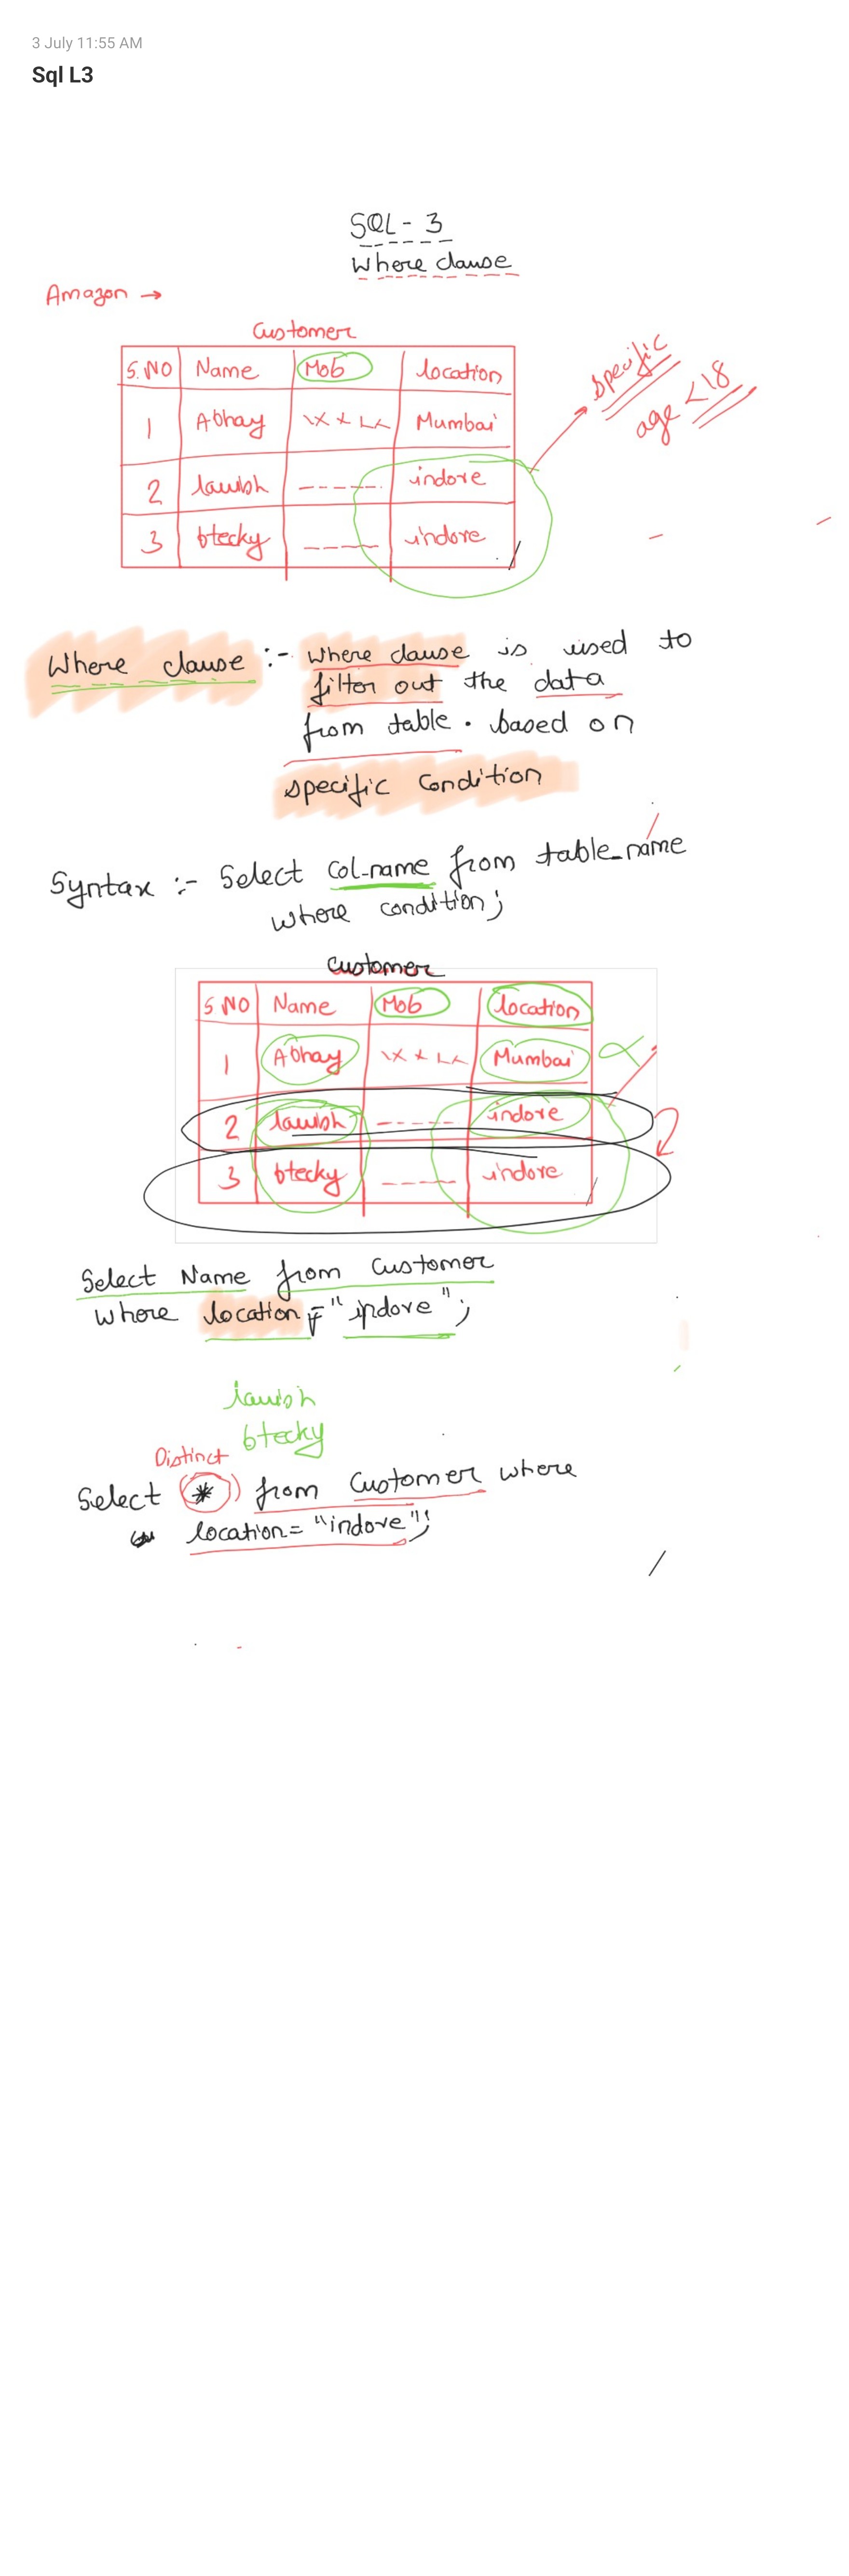 3 July 11:55 AM
Sql L3
SQL - 3
Where clause
Amazon →
Customer
S.NO Name Mob location
1 Abhay Mumbai
2 lavish ------ indore
3 btecky ----- indore
specific
age <18
Where clause :- Where clause is used to
filter out the data
from table. based on
specific Condition
Syntax :- Select Col-name from table_name
where condition;
Customer
S NO Name Mob location
1 Abhay Mumbai
2 lavish ----- indore
3 btecky ----- indore
Select Name from Customer
where location = "indore";
lavish
btecky
Distinct
Select * from Customer where
location= "indore";